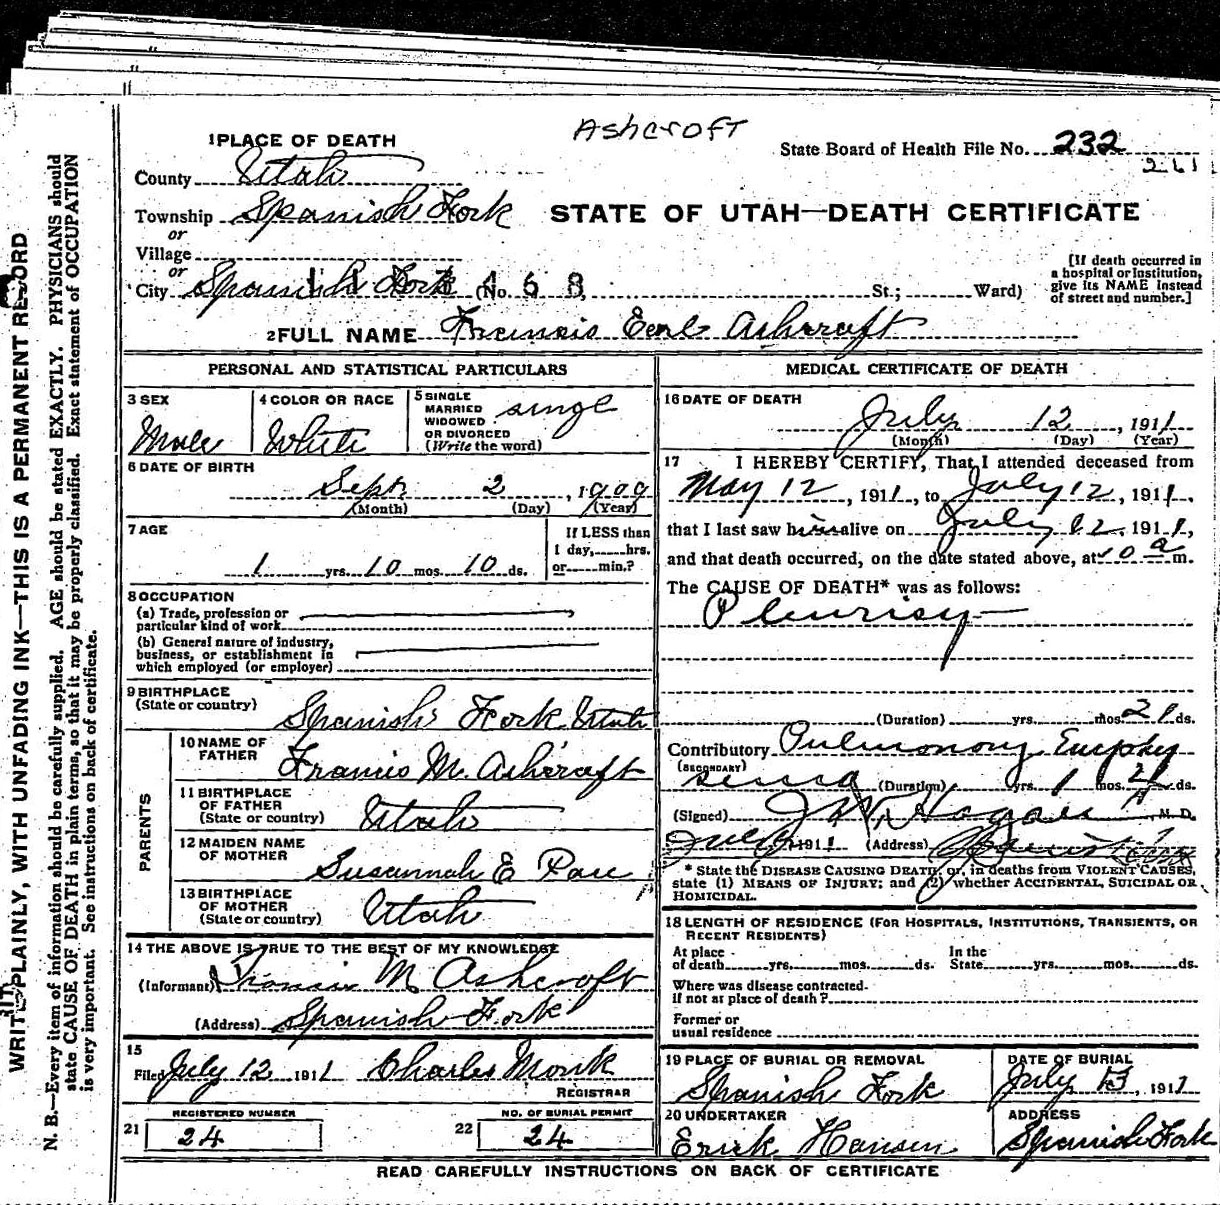 Ashcroft
1 PLACE OF DEATH
State Board of Health File No. 232
261
County Utah
Township Spanish Fork
STATE OF UTAH—DEATH CERTIFICATE
or
Village
or
City Spanish Fork (No. St.; Ward)
[If death occurred in
a hospital or institution,
give its NAME instead
of street and number.]
2 FULL NAME Francis Earl Ashcroft
PERSONAL AND STATISTICAL PARTICULARS
3 SEX
Male
4 COLOR OR RACE
White
5 SINGLE
MARRIED
WIDOWED
OR DIVORCED
(Write the word)
singl
6 DATE OF BIRTH
Sept 2, 1909
(Month) (Day) (Year)
7 AGE
1 yrs. 10 mos. 10 ds.
If LESS than
1 day, hrs.
or min.?
8 OCCUPATION
(a) Trade, profession or
particular kind of work
(b) General nature of industry,
business, or establishment in
which employed (or employer)
9 BIRTHPLACE
(State or country)
Spanish Fork Utah
PARENTS
10 NAME OF
FATHER
Francis M. Ashcroft
11 BIRTHPLACE
OF FATHER
(State or country)
Utah
12 MAIDEN NAME
OF MOTHER
Susannah E
13 BIRTHPLACE
OF MOTHER
(State or country)
Utah
14 THE ABOVE IS TRUE TO THE BEST OF MY KNOWLEDGE
(Informant) Francis M Ashcroft
(Address) Spanish Fork
15
Filed July 12 1911 Charles Monk
REGISTRAR
REGISTERED NUMBER
21 24
NO. OF BURIAL PERMIT
22 24
MEDICAL CERTIFICATE OF DEATH
16 DATE OF DEATH
July 12, 1911
(Month) (Day) (Year)
17 I HEREBY CERTIFY, That I attended deceased from
May 12, 1911, to July 12, 1911,
that I last saw him alive on July 12, 1911,
and that death occurred, on the date stated above, at 10 a m.
The CAUSE OF DEATH* was as follows:
Pleurisy
(Duration) yrs. mos. 21 ds.
Contributory Pulmonory Emphy
(SECONDARY)
sema (Duration) yrs. 1 mos. 21 ds.
(Signed) J W Hagan M.D.
July 1911 (Address) Spanish Fork
* State the DISEASE CAUSING DEATH, or, in deaths from VIOLENT CAUSES,
state (1) MEANS OF INJURY; and (2) whether ACCIDENTAL, SUICIDAL OR
HOMICIDAL.
18 LENGTH OF RESIDENCE (FOR HOSPITALS, INSTITUTIONS, TRANSIENTS, OR
RECENT RESIDENTS)
At place
of death yrs. mos. ds.
In the
State yrs. mos. ds.
Where was disease contracted
if not at place of death?
Former or
usual residence
19 PLACE OF BURIAL OR REMOVAL
Spanish Fork
DATE OF BURIAL
July 13, 1911
20 UNDERTAKER
Erick Hansen
ADDRESS
Spanish Fork
READ CAREFULLY INSTRUCTIONS ON BACK OF CERTIFICATE
WRITE PLAINLY, WITH UNFADING INK—THIS IS A PERMANENT RECORD
N. B.—Every item of information should be carefully supplied. AGE should be stated EXACTLY. PHYSICIANS should
state CAUSE OF DEATH in plain terms, so that it may be properly classified. Exact statement of OCCUPATION
is very important. See instructions on back of certificate.